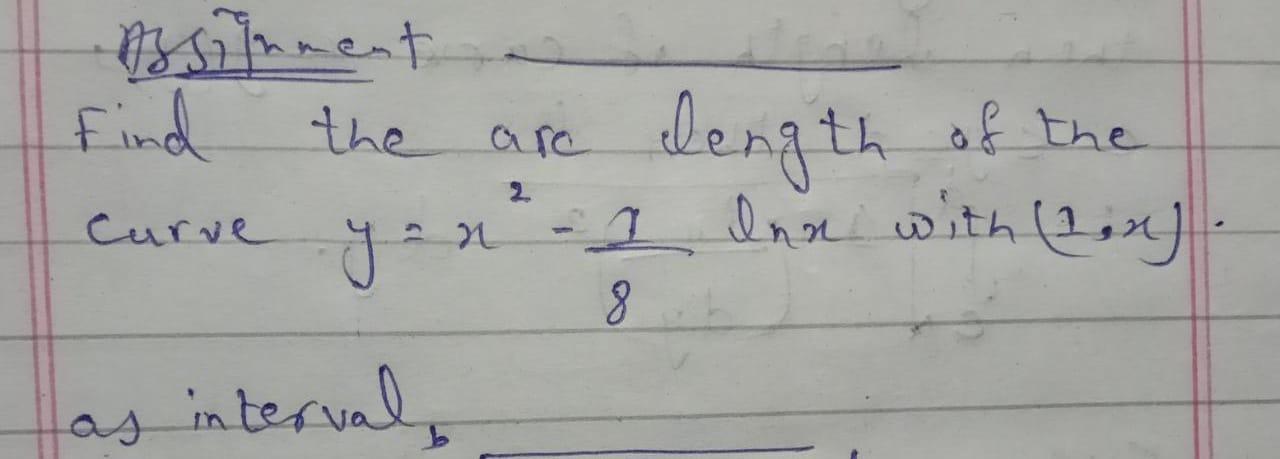 Assignment
Find the arc length of the
curve y = x² - 1/8 lnx with (1,x).
as interval,